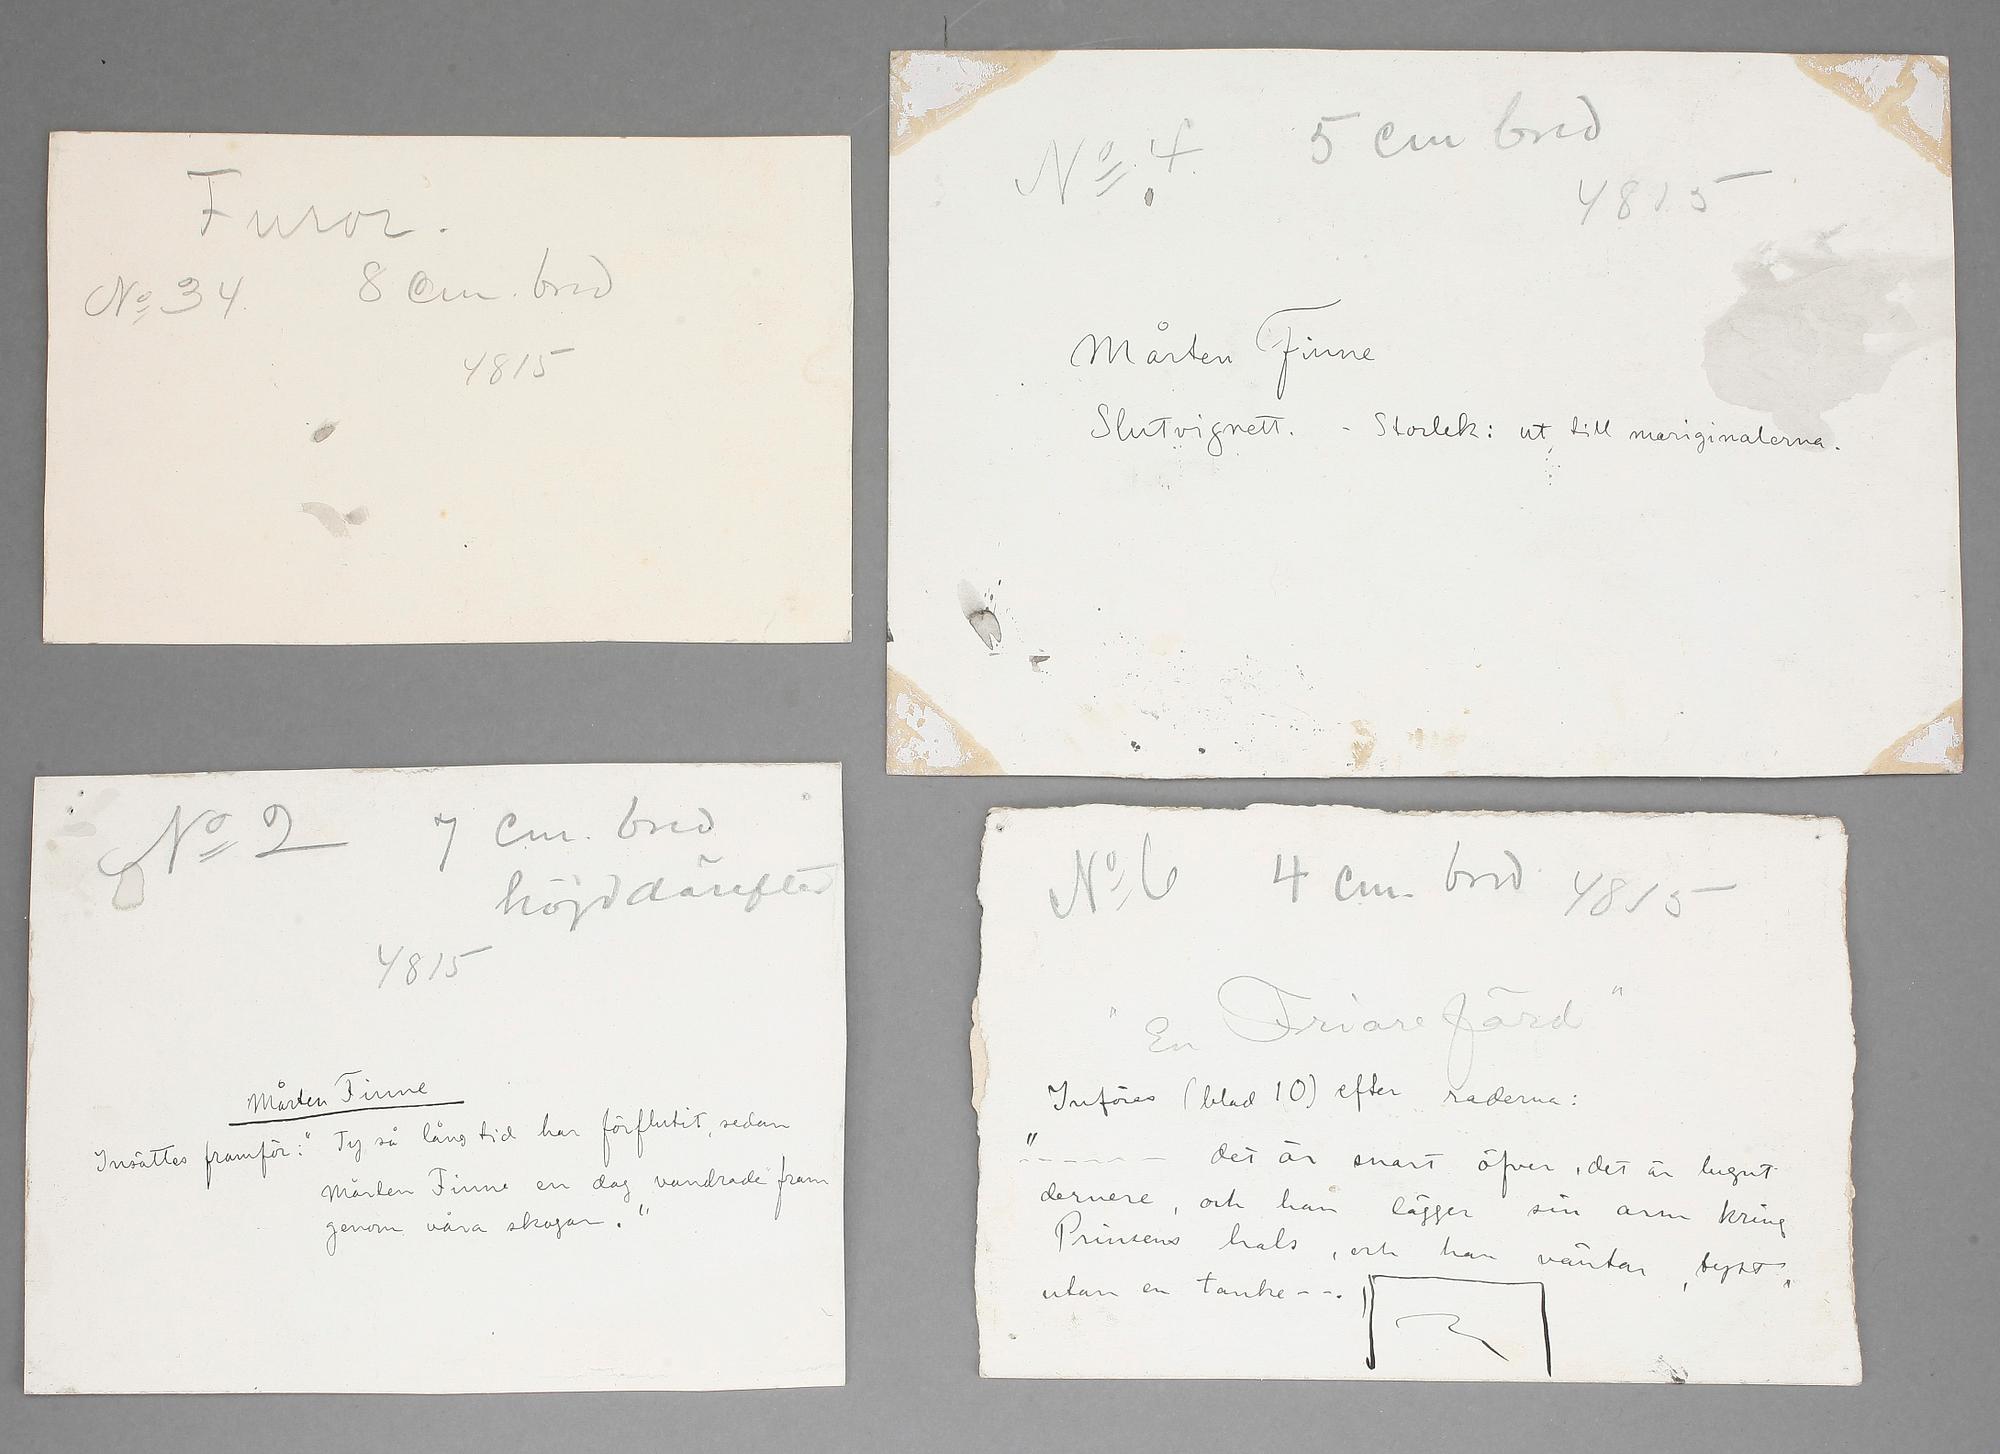 Furor.
No 34 8 cm. bred
4815
No. 4 5 cm bred
4815
Mårten Finne
Slutvignett. - Storlek: ut till mariginalerna.
No 2 7 cm. bred
höjd därefter
4815
Mårten Finne
Insättes framför: "Ty så lång tid har förflutit, sedan
Mårten Finne en dag vandrade fram
genom våra skogar."
No. 6 4 cm. bred 4815
"En Friarefärd"
Införes (blad 10) efter raderna:
"------ det är snart öfver, det är lugnt
dernere, och han lägger sin arm kring
Prinsens hals, och han väntar, tyst,
utan en tanke --.